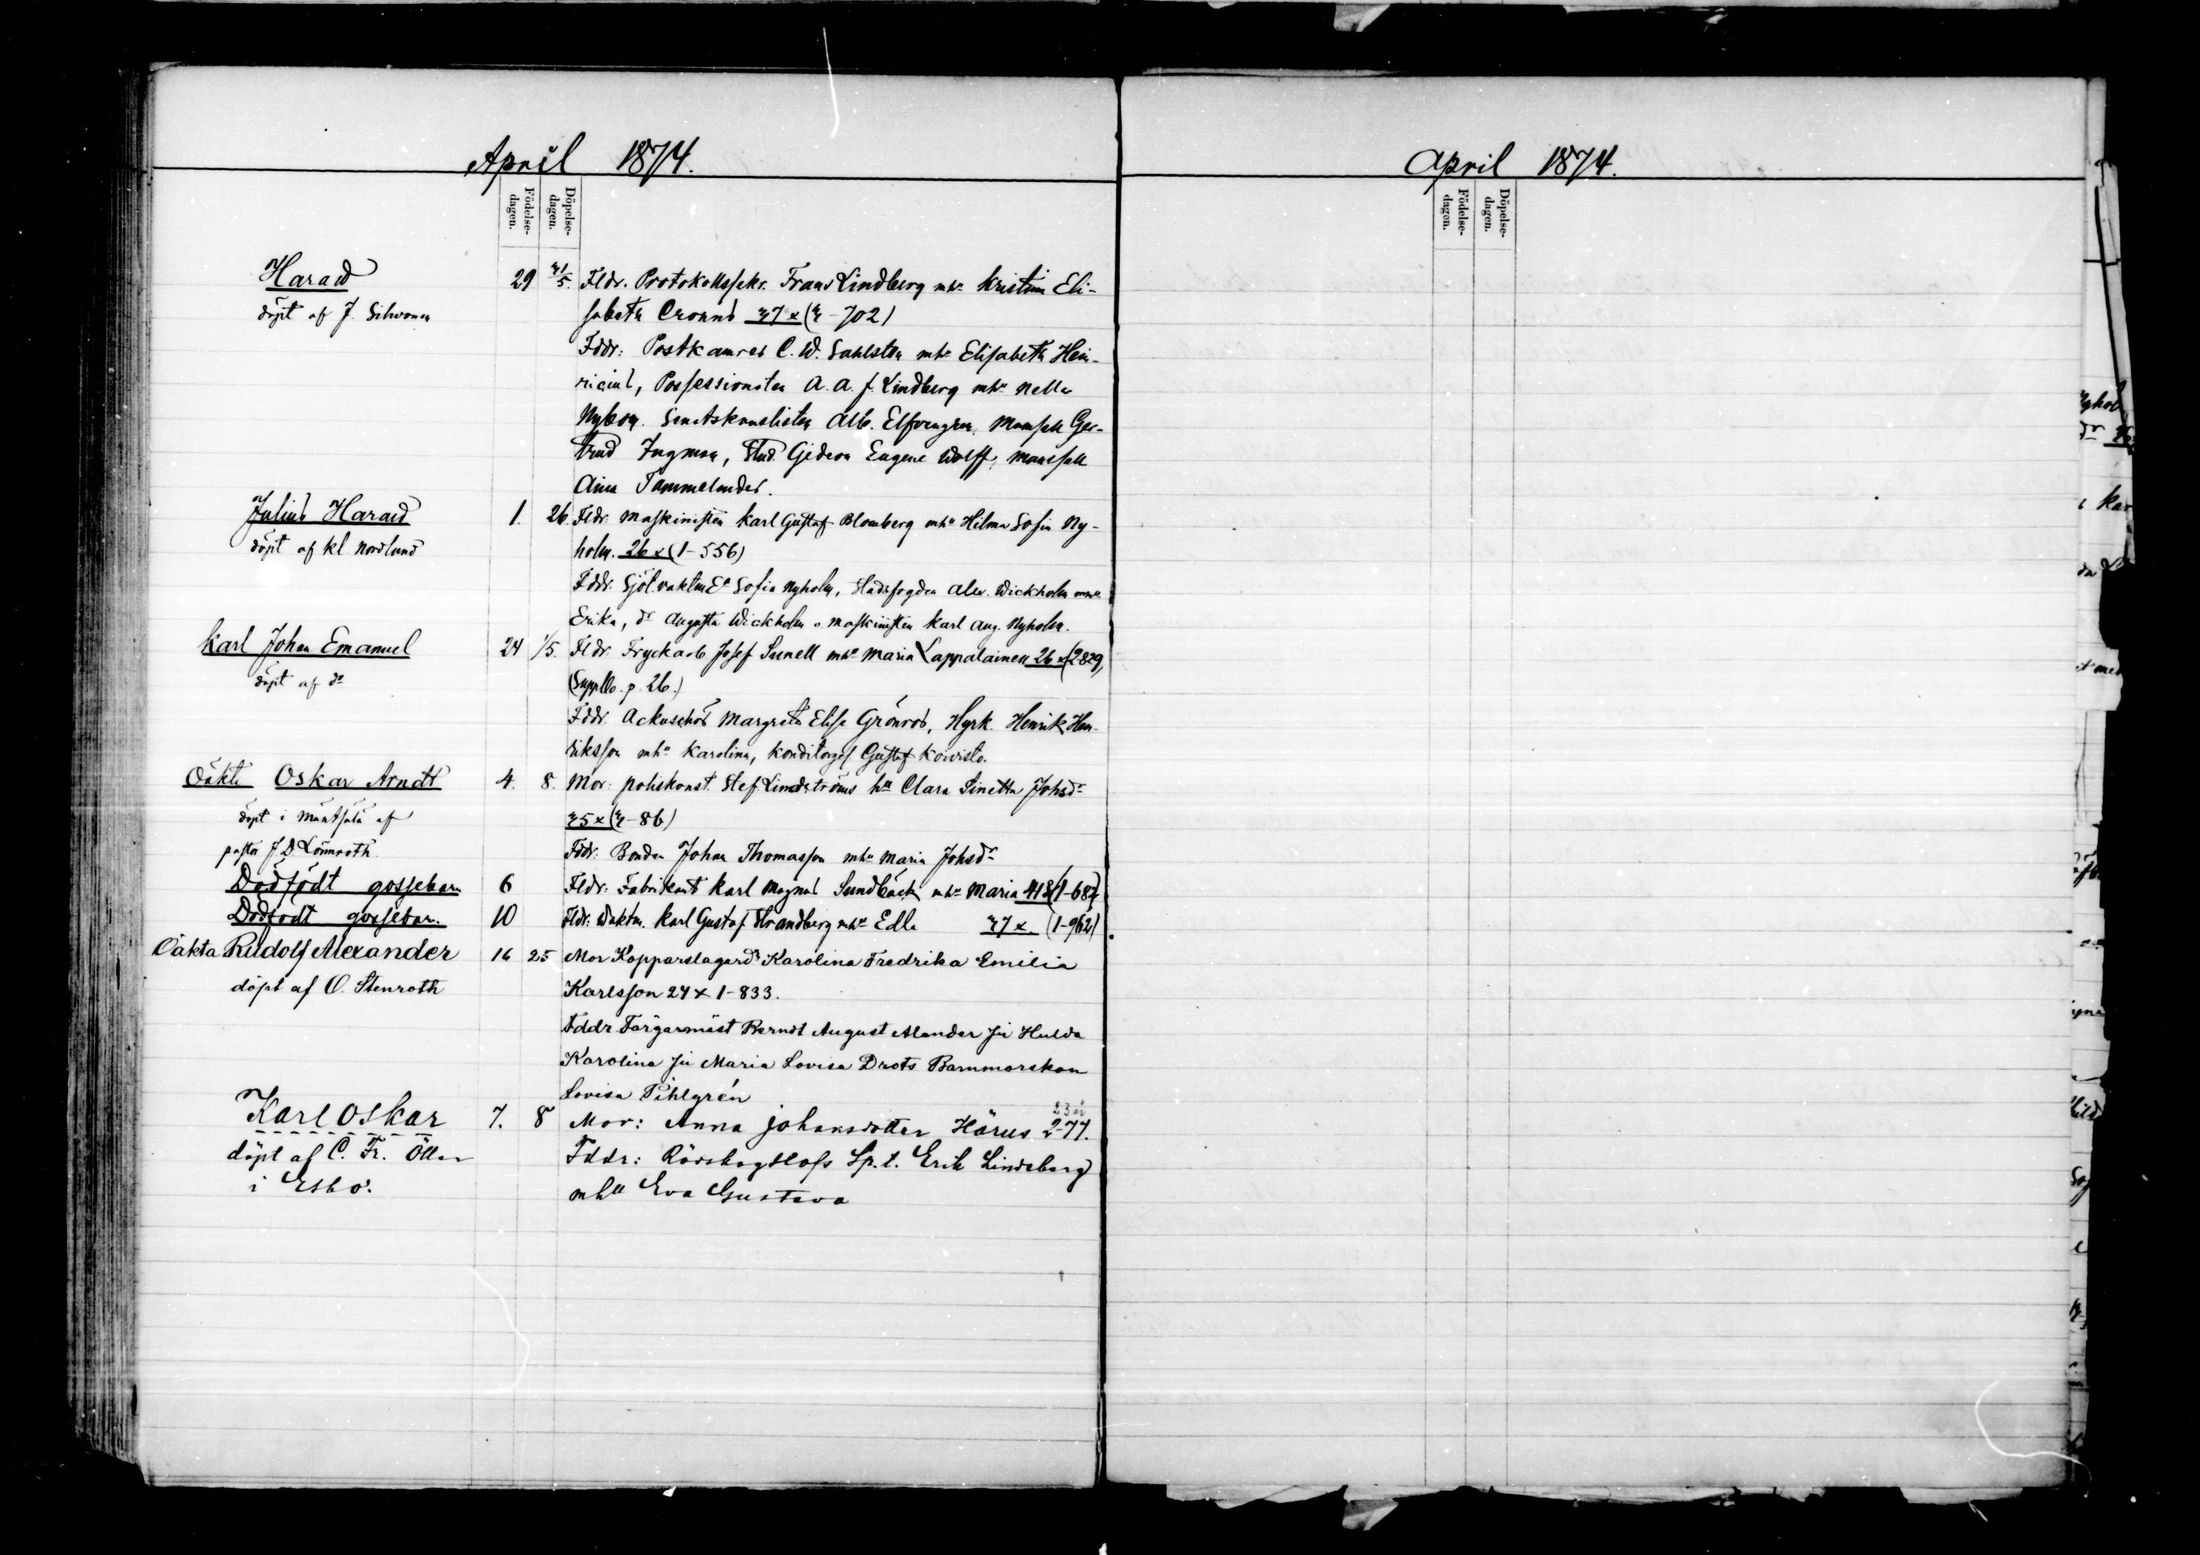 April 1874.
Födelse-
dagen.
Döpelse-
dagen.
Harald
döpt af J. Silvonen
29 31/5. Fldr. Protokollssekr. Frans Lindberg mhu Kristina Eli-
sabeth Cronns 37 x (3-702)
Fddr: Postkamrer C. W. Sahlsten mhu Elisabeth Hein-
ricius, Possessionaten A. A. f. Lindberg mhu Nella
Nyberg. Senatskanslisten Alb. Elfvengren, Mamsell Ger-
trud Ingman, Stud. Gideon Eugene Wolff, mamsell
Aina Tammelander.
Julius Harald
döpt af kl Nordlund
1. 26. Fldr. Maskinisten Karl Gustaf Blomberg mhu Hilma Sofia Ny-
holm. 26 x (1-556)
Fddr. Sjöl. vaktm Ea Sofia Nyholm, Stadsfogden Alex. Wickholm mhu
Erika, dr Augusta Wickholm o maskinisten Karl Aug. Nyholm.
Karl Johan Emanuel
döpt af do
24 1/5. Fldr Tryckarb Josef Sunell mhu Maria Lappalainen 26 x (2829,
(Suppl. p. 26.)
Fddr. Ackuschös Margreta Elise Grönroos, Hyrk. Henrik Hen-
riksson mhu Karolina, konditorges. Gustaf Koivisto.
Oäkta Oskar Arndt
döpt i Mäntsälä af
pastor J D Lönnroth.
4. 8. Mor: poliskonst. Stef. Lindströms hu Clara Sinetta Johsdr
35 x (3-86)
Fddr: Bonden Johan Thomasson mhu Maria Johsdr
Dödfödt gossebarn
6 Fldr: Fabrikant Karl Magnus Sundbäck mhu Maria 41 x (1-682)
Dödfödt gossebarn.
10 Fldr: Vaktm. Karl Gustaf Strandberg mhu Edla 37 x (1-962)
Oäkta Rudolf Alexander
döpt af O. Stenroth
16 25 Mor Kopparslagardr Karolina Fredrika Emilia
Karlsson 24 x 1-833.
Fddr Färgarmäst Berndt August Alander fru Hulda
Karolina fru Maria Lovisa Drots Barnmorskan
Lovisa Pihlgrén
Karl Oskar
döpt af C. Fr. Öller
i Esbo.
23 år
7. 8 Mor: Anna Johansdotter Härus 2-77.
Fddr: Rödskogstofs Sp. t. Erik Lindeberg
mhu Eva Gustava
April 1874.
Födelse-
dagen.
Döpelse-
dagen.